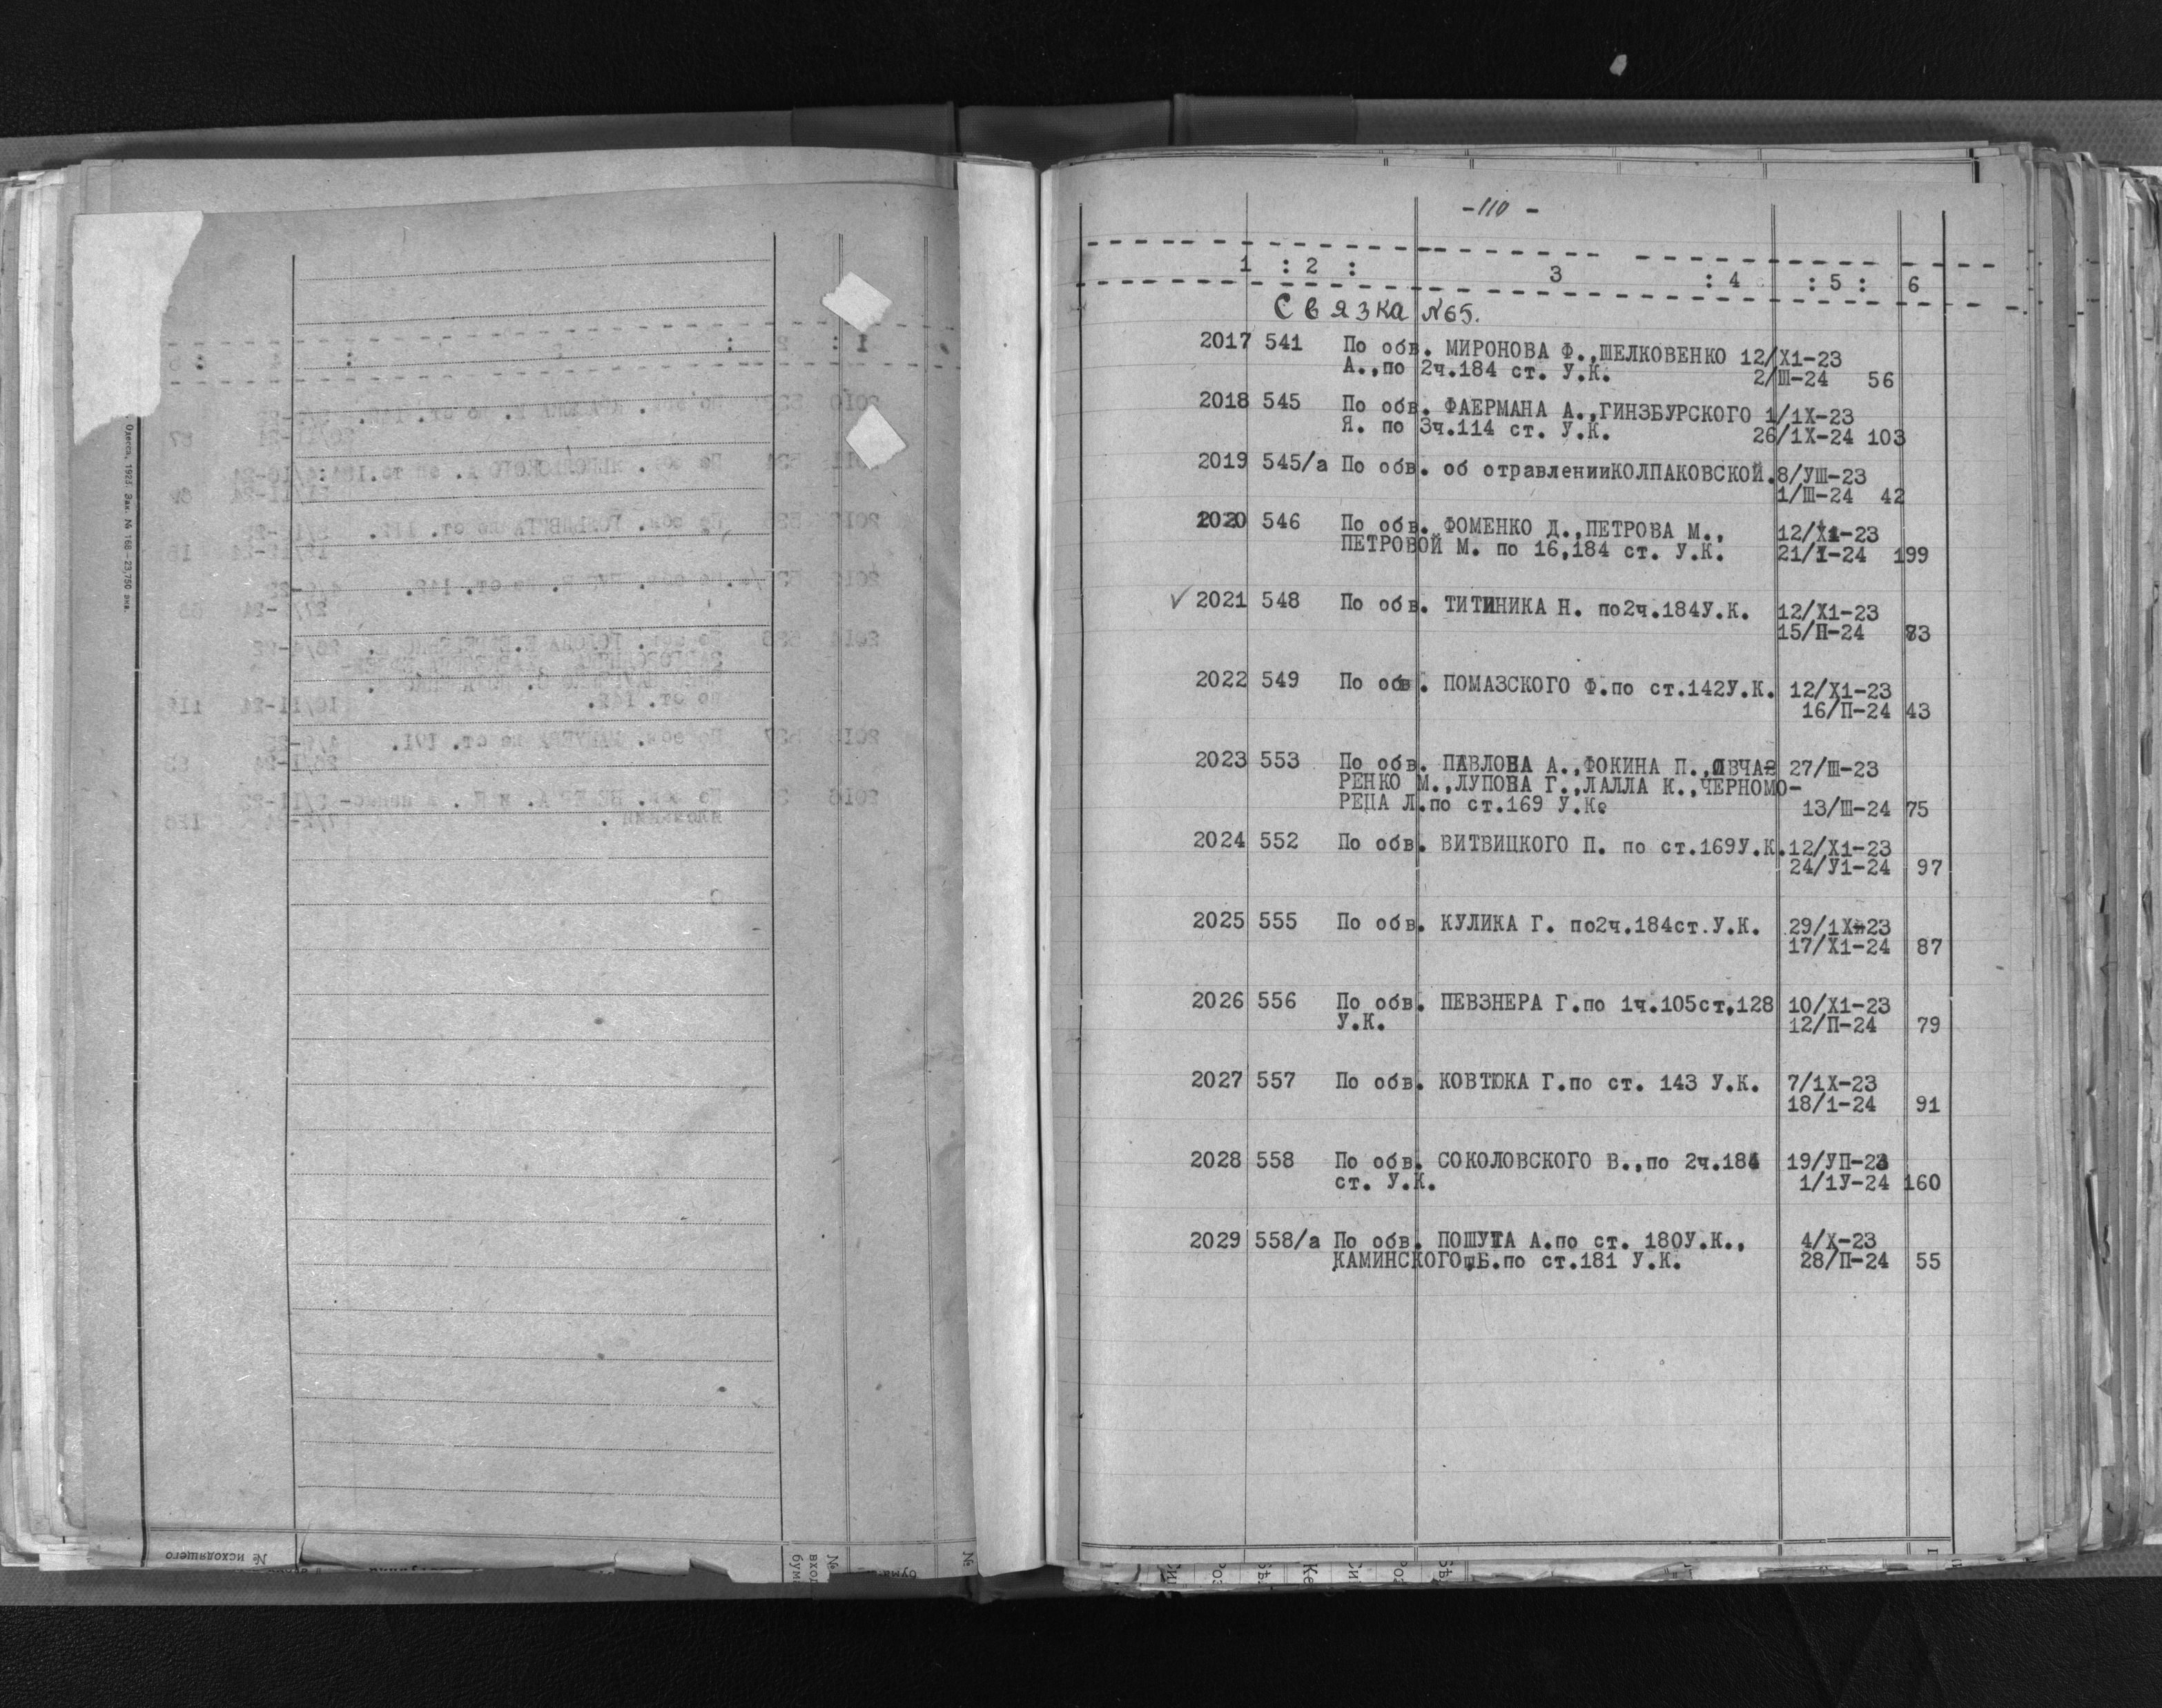 Одесса, 1923. Зак. № 168—23,750 экз.
№ исходящего
-110 -
1 : 2 : 3 : 4 : 5 : 6
Связка №65.
2017 541 По обв. МИРОНОВА Ф.,ШЕЛКОВЕНКО 12/Х1-23
А.,по 2ч.184 ст. У.К. 2/Ш-24 56
2018 545 По обв. ФАЕРМАНА А.,ГИНЗБУРСКОГО 1/1Х-23
Я. по 3ч.114 ст. У.К. 26/1Х-24 103
2019 545/а По обв. об отравленииКОЛПАКОВСКОЙ.8/УШ-23
1/Ш-24 42
2020 546 По обв. ФОМЕНКО Д.,ПЕТРОВА М., 12/Х1-23
ПЕТРОВОЙ М. по 16,184 ст. У.К. 21/1-24 199
✓ 2021 548 По обв. ТИТИНИКА Н. по2ч.184У.К. 12/Х1-23
15/П-24 83
2022 549 По обв. ПОМАЗСКОГО Ф.по ст.142У.К. 12/Х1-23
16/П-24 43
2023 553 По обв. ПАВЛОВА А.,ФОКИНА П.,ОВЧА- 27/Ш-23
РЕНКО М.,ЛУПОВА Г.,ЛАЛЛА К.,ЧЕРНОМО-
РЕЦА Л.по ст.169 У.К. 13/Ш-24 75
2024 552 По обв. ВИТВИЦКОГО П. по ст.169У.К.12/Х1-23
24/У1-24 97
2025 555 По обв. КУЛИКА Г. по2ч.184ст.У.К. 29/1Х-23
17/Х1-24 87
2026 556 По обв. ПЕВЗНЕРА Г.по 1ч.105ст,128 10/Х1-23
У.К. 12/П-24 79
2027 557 По обв. КОВТЮКА Г.по ст. 143 У.К. 7/1Х-23
18/1-24 91
2028 558 По обв. СОКОЛОВСКОГО В.,по 2ч.184 19/УП-23
ст. У.К. 1/1У-24 160
2029 558/а По обв. ПОШУТА А.по ст. 180У.К., 4/Х-23
КАМИНСКОГО Б.по ст.181 У.К. 28/П-24 55